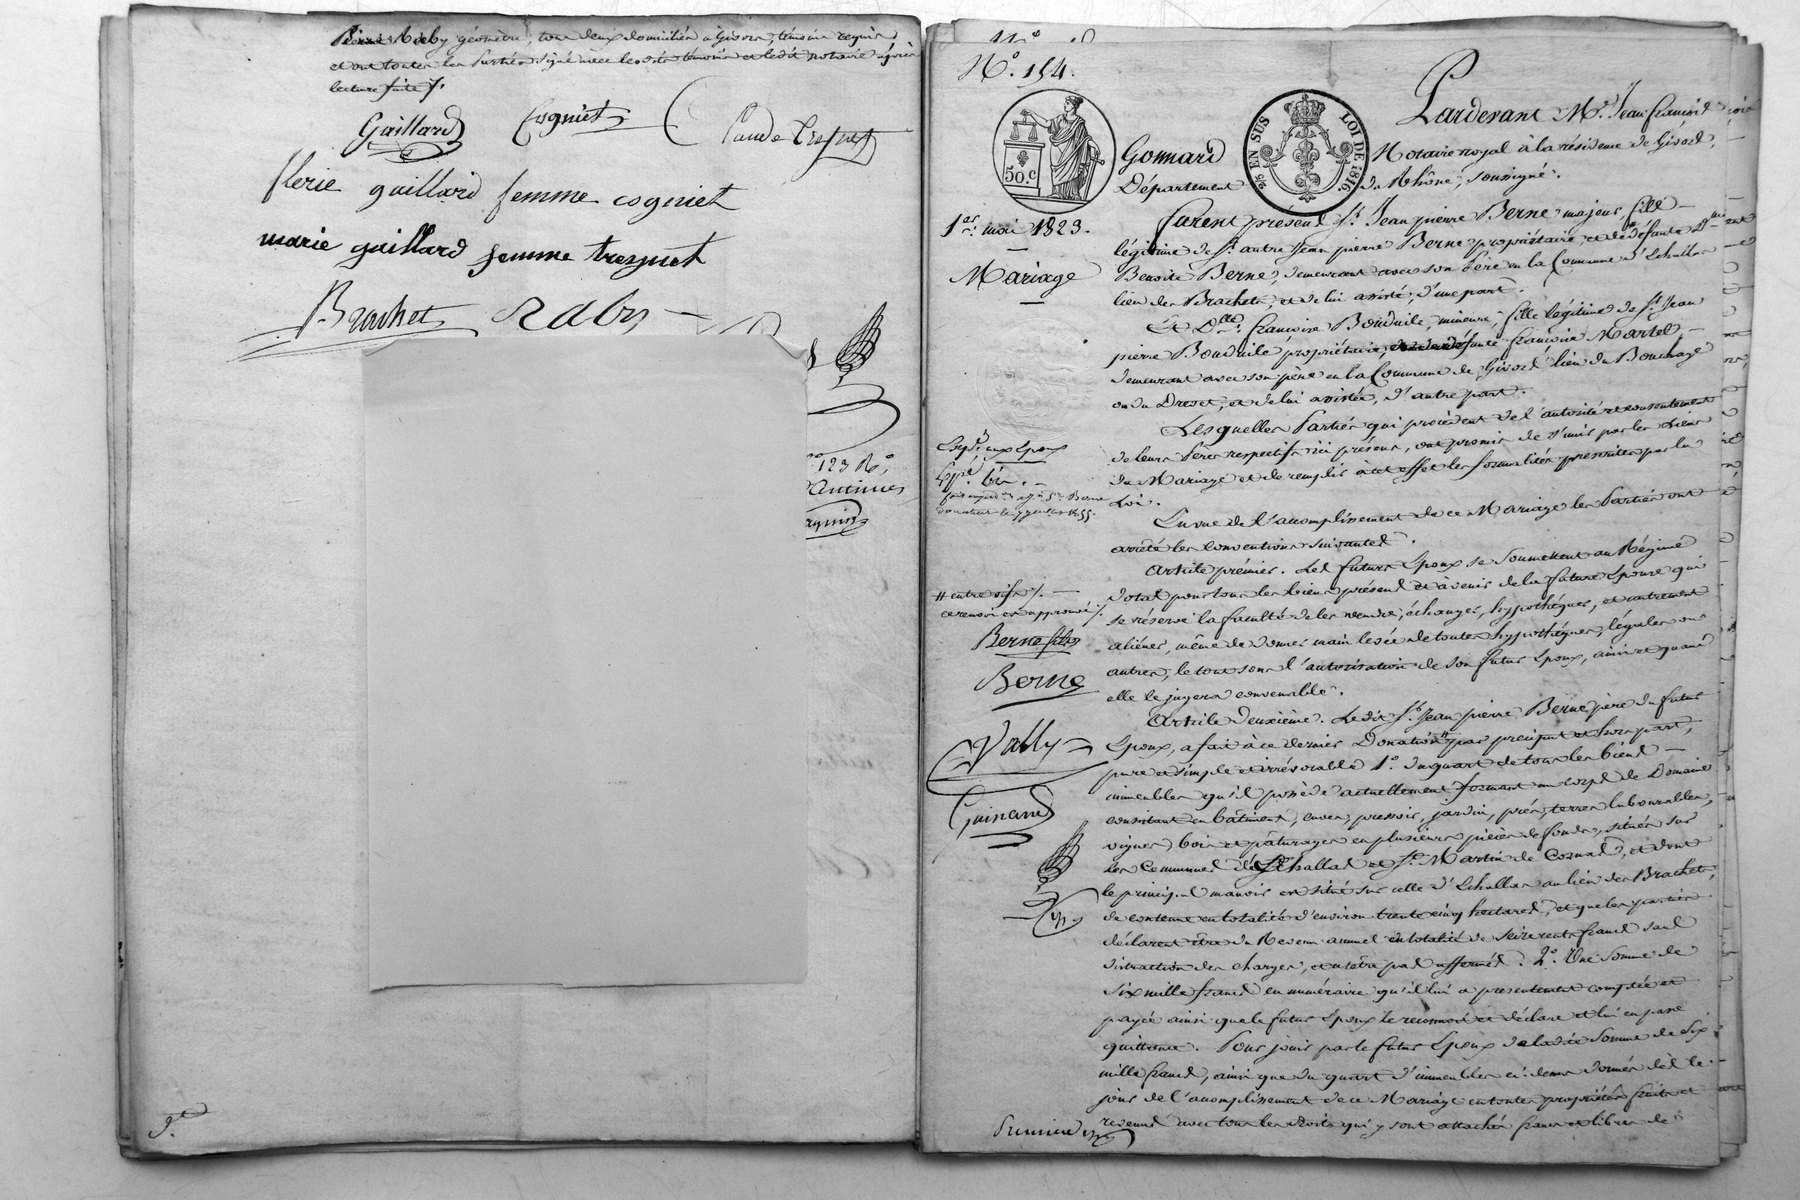 Pierre Raby géomètre, tous deux domiciliés à Givors, témoins requis
et ont toutes les Parties signé avec lesdits témoins et ledit notaire après
lecture faite ./.
Gaillard Cogniet Claude
flerie gaillard femme cogniet
marie gaillard femme tresynet
Brachet Raby
123 Ro,
9.e
No. 154.
50.c
2/5 EN SUS LOI DE 1816.
1er. mai 1823.
Mariage
Pardevant Me. Jean françois
Gonnard Notaire royal à la résidence de Givors,
Département du Rhône, soussigné.
furent présens Sr. Jean pierre Berne majeur, fils
légitime de Sr. autre Jean pierre Berne propriétaire et de défunte D.
Benoite Berne, demeurant avec son Père en la Commune d'Echallas
lieu des Brachets, et de lui assisté, d'une part.
Et Dlle. françoise Bonduile, mineure, fille légitime de Sr. Jean
pierre Bonduile propriétaire, et de défunte françoise Martel,
demeurant avec son père en la Commune de Givors lieu du Bouchage
ou du Drevet, et de lui assistée, d'autre part.
Lesquelles Parties qui procèdent de l'autorité et consentement
de leurs Pères respectifs ici présens, ont promis de s'unir par les Liens
du Mariage et de remplir à cet effet les formalités prescrites par la
Loi.
En vue de l'accomplissement de ce Mariage les Parties ont
arrêté les Conventions suivantes.
Article prémier. Les futurs Epoux se soumettent au Régime
dotal pour tous les biens présens et à venir de la future Epouse qui
se réserve la faculté de les vendre, échanger, hypothéquer, et autrement
aliéner, même de donner main levée de toutes hypothèques, légales ou
autres, le tout sous l'autorisation de son futur Epoux, ainsi et quand
elle le jugera convenable.
Article deuxième. Ledit Sr. Jean pierre Berne père du futur
Epoux, a fait à ce dernier Donation # par préciput et hors part,
pure et simple et irrévocable 1o. du quart de tous les biens
immeubles qu'il possède actuellement formant un corps de Domaine
consistant en bâtiment, cuves, pressoir, jardin, prés, terres labourables,
vignes, bois et pâturages en plusieurs pièces de fonds, situés sur
les Communes d'Echallas et St. Martin de Cornas, et dont
le princip. al manoir est situé sur celle d'Echallas au lieu des Brachets,
de contenue en totalité d'environ trente cinq hectares, et que les parties
déclarent être du Revenu annuel en totalité de seize cents francs sans
distraction des charges, et n'être pas affermés. 2o. Une Somme de
six mille francs en numéraire qu'il lui a présentement comptée et
payée ainsi que le futur Epoux le reconnoit et déclare et lui en passe
quittance. Pour jouir par le futur Epoux de ladite Somme de six
mille francs, ainsi que du quart d'immeubles ci-dessus donnés dès le
jour de l'accomplissement de ce Mariage en toutes propriétés fruits et
revenus avec tous les droits qui y sont attachés francs et libres de
Expd. aux Epoux
# entre vifs ./.
ce renvoi est approuvé ./.
Berne fils
Berne
Vally
Guinand